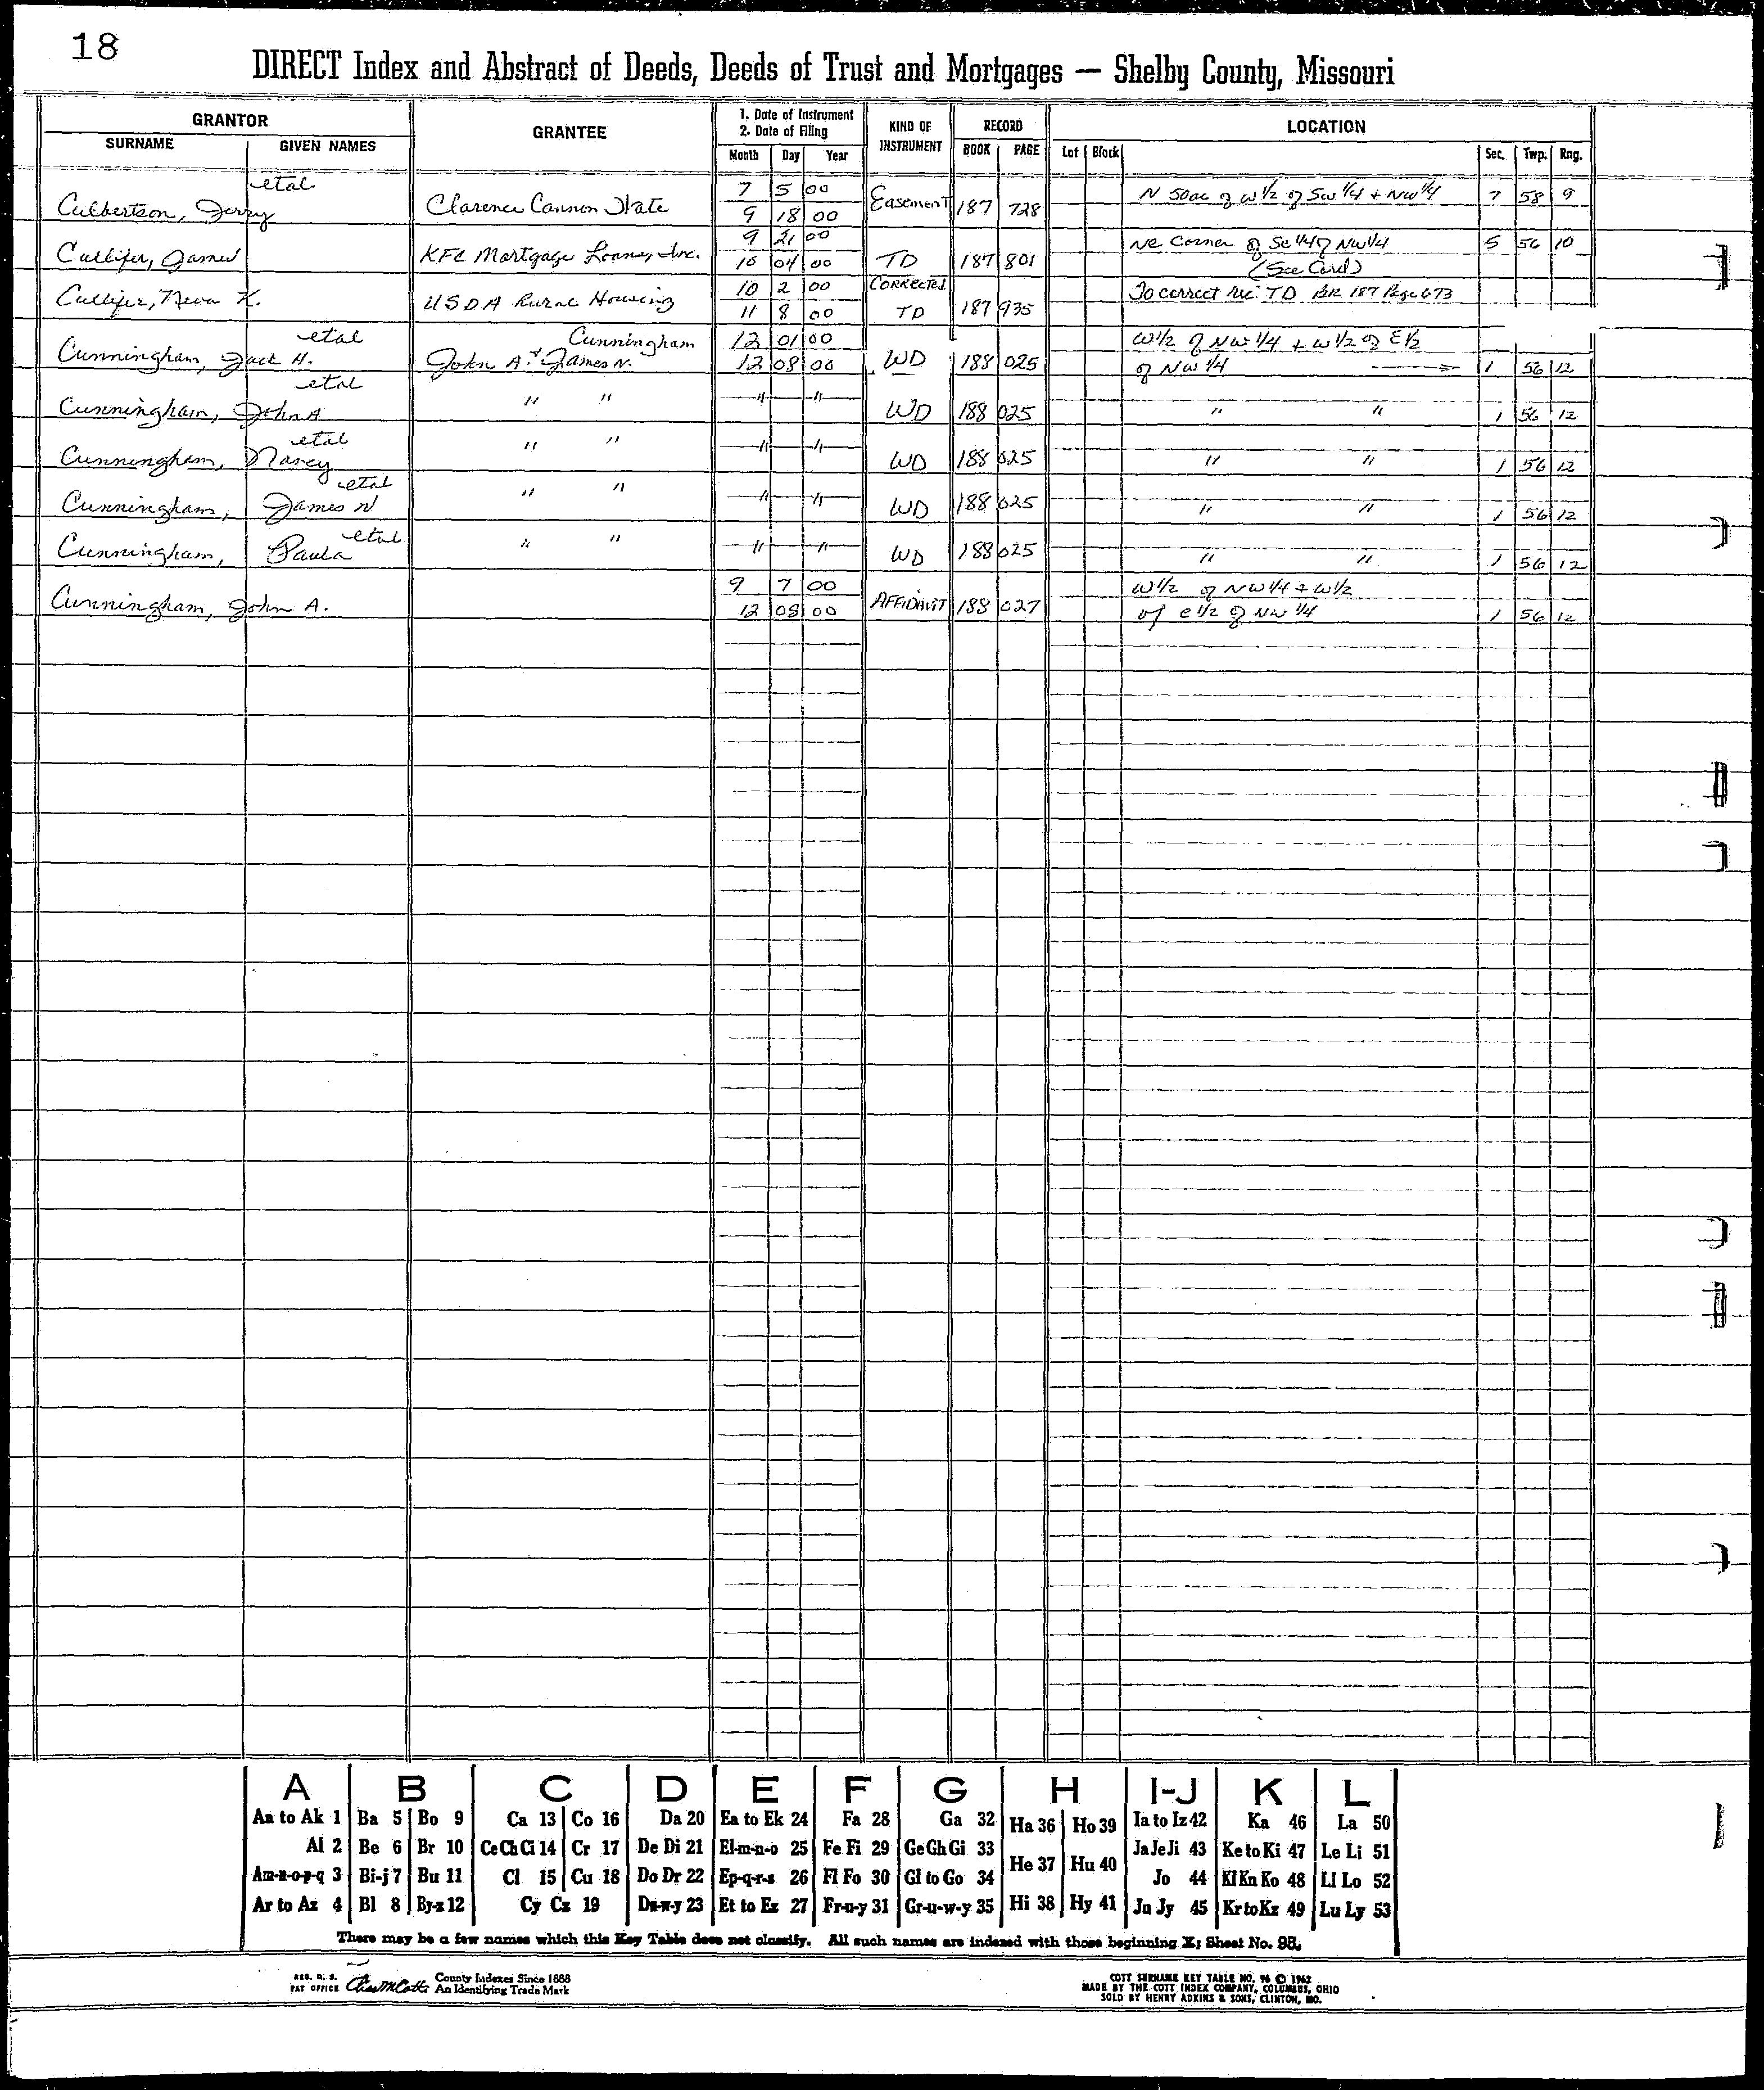 18
DIRECT Index and Abstract of Deeds, Deeds of Trust and Mortgages — Shelby County, Missouri
GRANTOR
SURNAME GIVEN NAMES
GRANTEE
1. Date of Instrument
2. Date of Filing
Month Day Year
KIND OF
INSTRUMENT
RECORD
BOOK PAGE
LOCATION
Lot Block Sec. Twp. Rng.
etal 7 5 00
Culbertson, Jerry Clarence Cannon 9 18 00 Easement 187 728 N 50ac of W 1/2 of SW 1/4 + NW 1/4 7 58 9
9 21 00 NE Corner of SE 1/4 of NW 1/4 5 56 10
Cullifer, James KFC Mortgage Loans, Inc. 10 04 00 TD 187 801 (See Card)
10 2 00 CORRECTED To correct Rec. TD BK 187 Page 673
Cullifer, Neva K. USDA Rural Housing 11 8 00 TD 187 935
etal Cunningham 12 01 00 W 1/2 of NW 1/4 + W 1/2 of E 1/2
Cunningham, Jack H. John A. + James N. 12 08 00 WD 188 025 of NW 1/4 1 56 12
etal
Cunningham, John A " " " " WD 188 025 " " 1 56 12
etal
Cunningham, Nancy " " " " WD 188 025 " " 1 56 12
etal
Cunningham, James N " " " " WD 188 025 " " 1 56 12
etal
Cunningham, Paula " " " " WD 188 025 " " 1 56 12
9 7 00 W 1/2 of NW 1/4 + W 1/2
Cunningham, John A. 12 08 00 AFFIDAVIT 188 027 of E 1/2 of NW 1/4 1 56 12
A B C D E F G H I-J K L
Aa to Ak 1 Ba 5 Bo 9 Ca 13 Co 16 Da 20 Ea to Ek 24 Fa 28 Ga 32 Ha 36 Ho 39 Ia to Iz 42 Ka 46 La 50
Al 2 Be 6 Br 10 Ce Ch Ci 14 Cr 17 De Di 21 El-m-n-o 25 Fe Fi 29 Ge Gh Gi 33 He 37 Hu 40 Ja Je Ji 43 Ke to Ki 47 Le Li 51
Am-n-o-p-q 3 Bi-j 7 Bu 11 Cl 15 Cu 18 Do Dr 22 Ep-q-r-s 26 Fl Fo 30 Gl to Go 34 Jo 44 Kl Kn Ko 48 Ll Lo 52
Ar to Az 4 Bl 8 By-z 12 Cy Cz 19 Du-w-y 23 Et to Ez 27 Fr-u-y 31 Gr-u-w-y 35 Hi 38 Hy 41 Ju Jy 45 Kr to Kz 49 Lu Ly 53
There may be a few names which this Key Table does not classify. All such names are indexed with those beginning X; Sheet No. 95.
REG. U. S.
PAT OFFICE
County Indexes Since 1888
An Identifying Trade Mark
COTT SURNAME KEY TABLE NO. 96 © 1962
MADE BY THE COTT INDEX COMPANY, COLUMBUS, OHIO
SOLD BY HENRY ADKINS & SONS, CLINTON, MO.